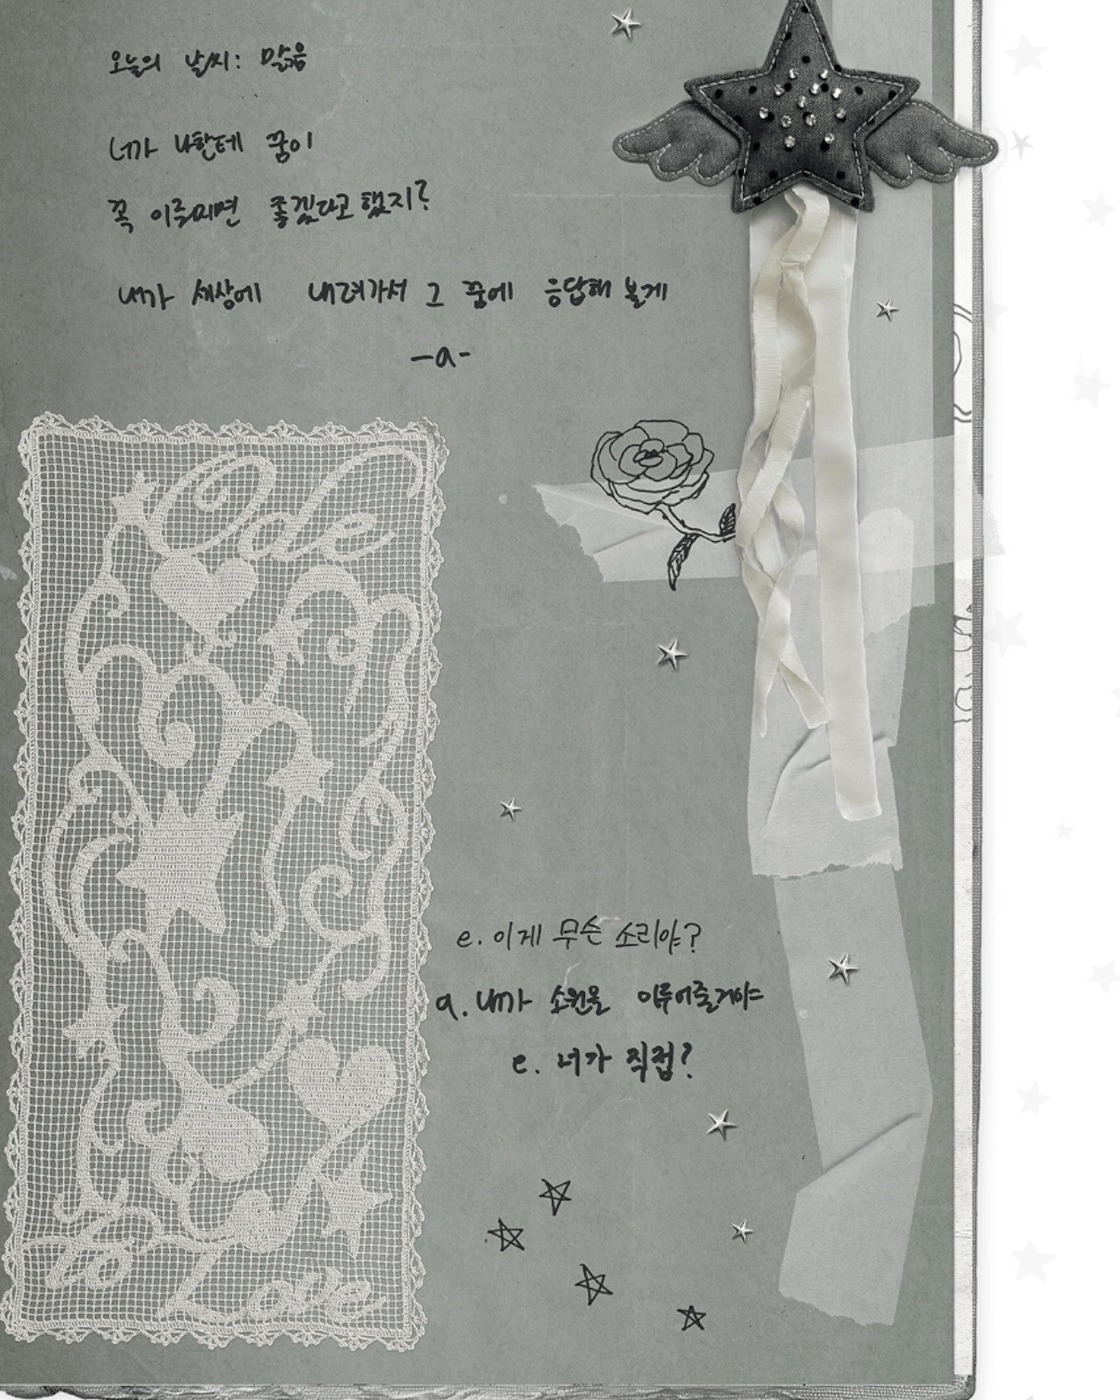 오늘의 날씨: 맑음
너가 나한테 꿈이
꼭 이루어지면 좋겠다고 했지?
내가 세상에 내려가서 그 꿈에 응답해 볼게
-a-
Ode
to Love
e. 이게 무슨 소리야?
a. 내가 소원을 이루어줄거야
e. 너가 직접?